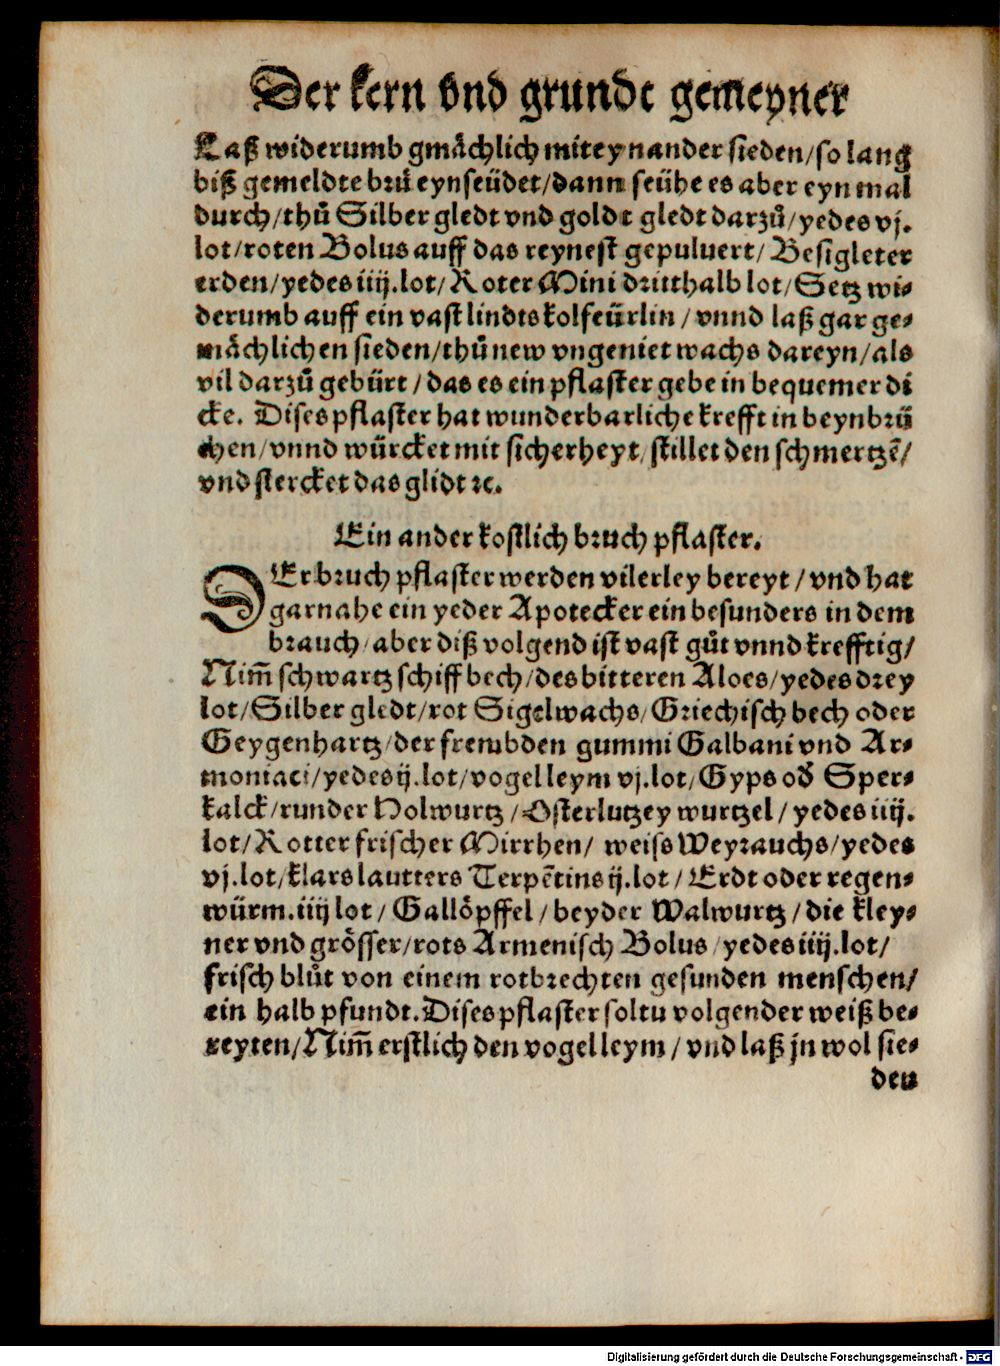 Der kern vnd grundt gemeyner
Laß widerumb gmaͤchlich miteynander sieden/so lang
biß gemeldte bruͤ eynseüdet/dann seühe es aber eyn mal
durch/thuͦ Silber gledt vnd goldt gledt darzuͦ/yedes vj.
lot/roten Bolus auff das reynest gepuluert/Besigleter
erden/yedes iiij.lot/Roter Mini dritthalb lot/Setz wi-
derumb auff ein vast lindts kolfeürlin/vnnd laß gar ge-
maͤchlichen sieden/thuͦ new vngenietwachs dareyn/als
vil darzuͦ gebürt/das es ein pflaster gebe in bequemer di
cke. Dises pflaster hat wunderbarliche krefft in beynbrü
chen/vnnd würcket mit sicherheyt/stillet den schmertzē/
vnd stercket das glidt ꝛc.
Ein ander kostlich bruch pflaster.
DEr bruch pflaster werden vilerley bereyt/vnd hat
garnahe ein yeder Apotecker ein besunders in dem
brauch/aber diß volgend ist vast guͦt vnnd krefftig/
Nim̄ schwartz schiff bech/des bitteren Aloes/yedes drey
lot/Silber gledt/rot Sigelwachs/Griechisch bech oder
Geygenhartz/der frembden gummi Galbani vnd Ar-
moniaci/yedes ij.lot/vogelleym vj.lot/Gyps oď Sper-
kalck/runder Holwurtz/Osterlutzey wurtzel/yedes iiij.
lot/Rotter frischer Mirrhen/weiss Weyrauchs/yedes
vj.lot/klars lautters Terpētins ij.lot/Erdt oder regen-
würm.iiij lot/Galloͤpffel/beyder Walwurtz/die kley-
ner vnd groͤsser/rots Armenisch Bolus/yedes iiij.lot/
frisch bluͦt von einem rotbrechten gesunden menschen/
ein halb pfundt.Dises pflaster soltu volgender weiß be-
reyten/Nim̄ erstlich den vogelleym/vnd laß jn wol sie-
den
Digitalisierung gefördert durch die Deutsche Forschungsgemeinschaft - DFG